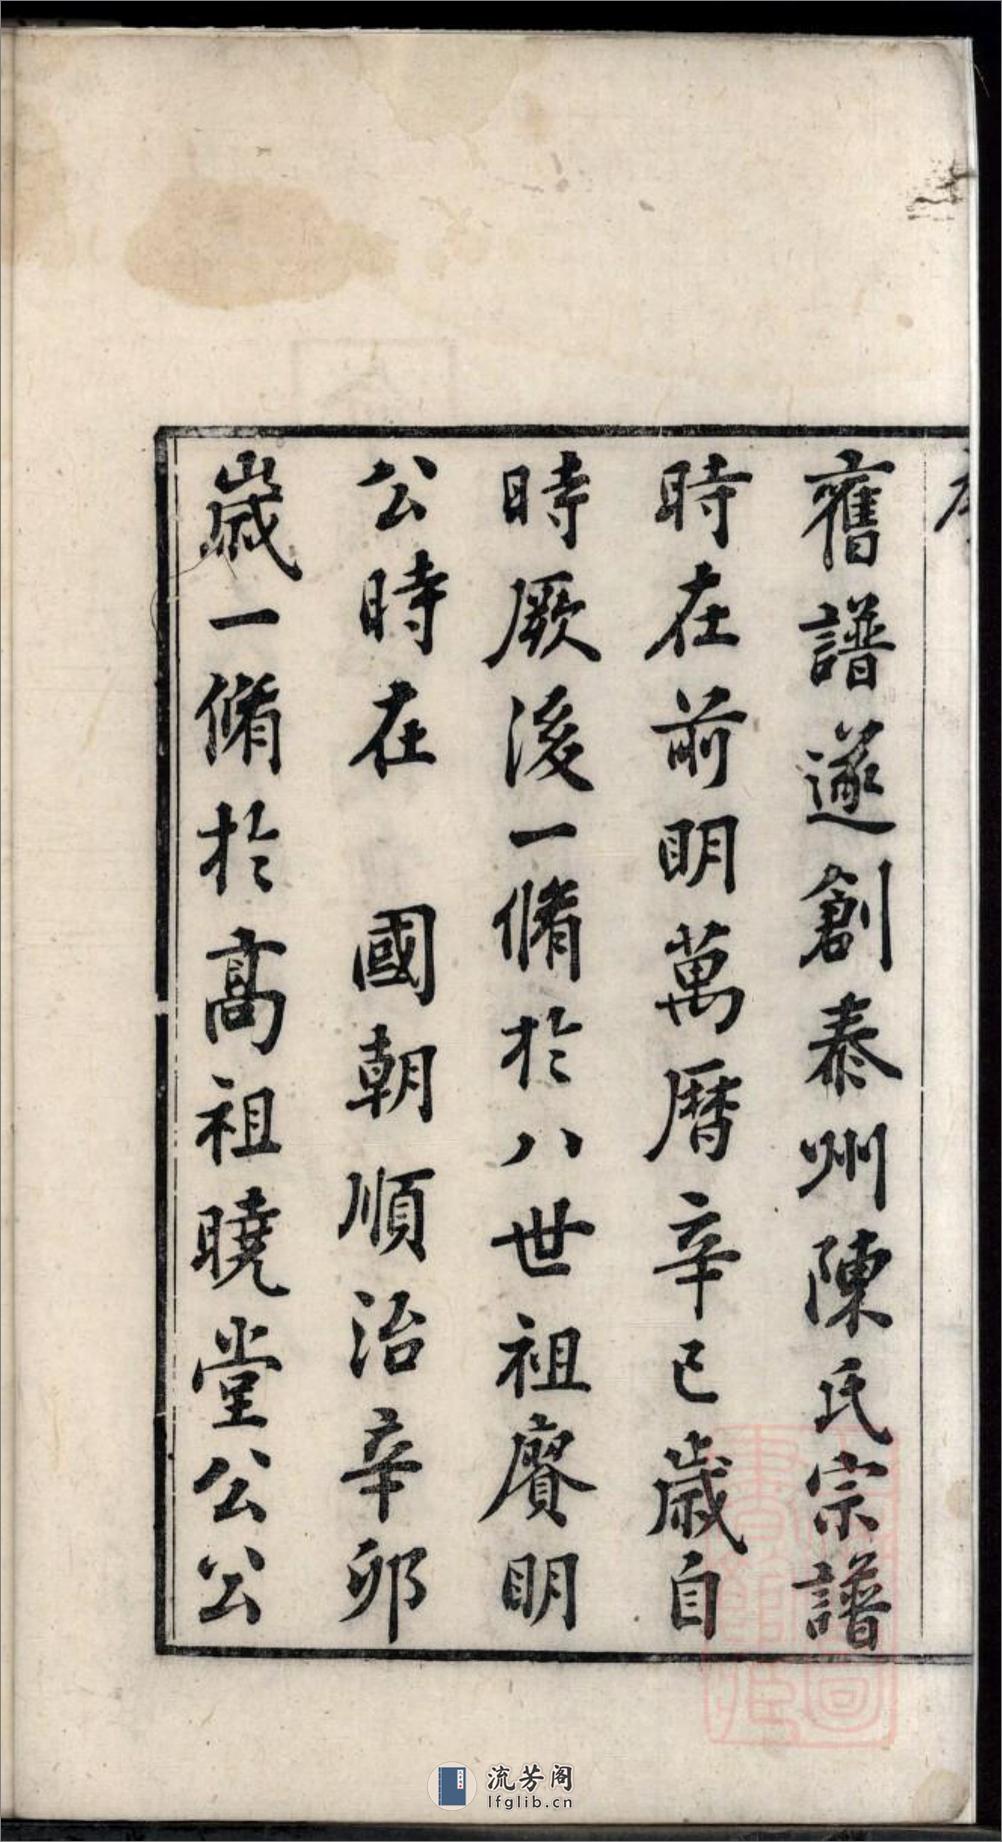 舊譜遂創泰州陳氏宗譜
時在前明萬曆辛巳歲自
時厥後一脩於八世祖賡明
公時在　國朝順治辛卯
歲一脩於高祖曉堂公公
流芳阁
lfglib.cn